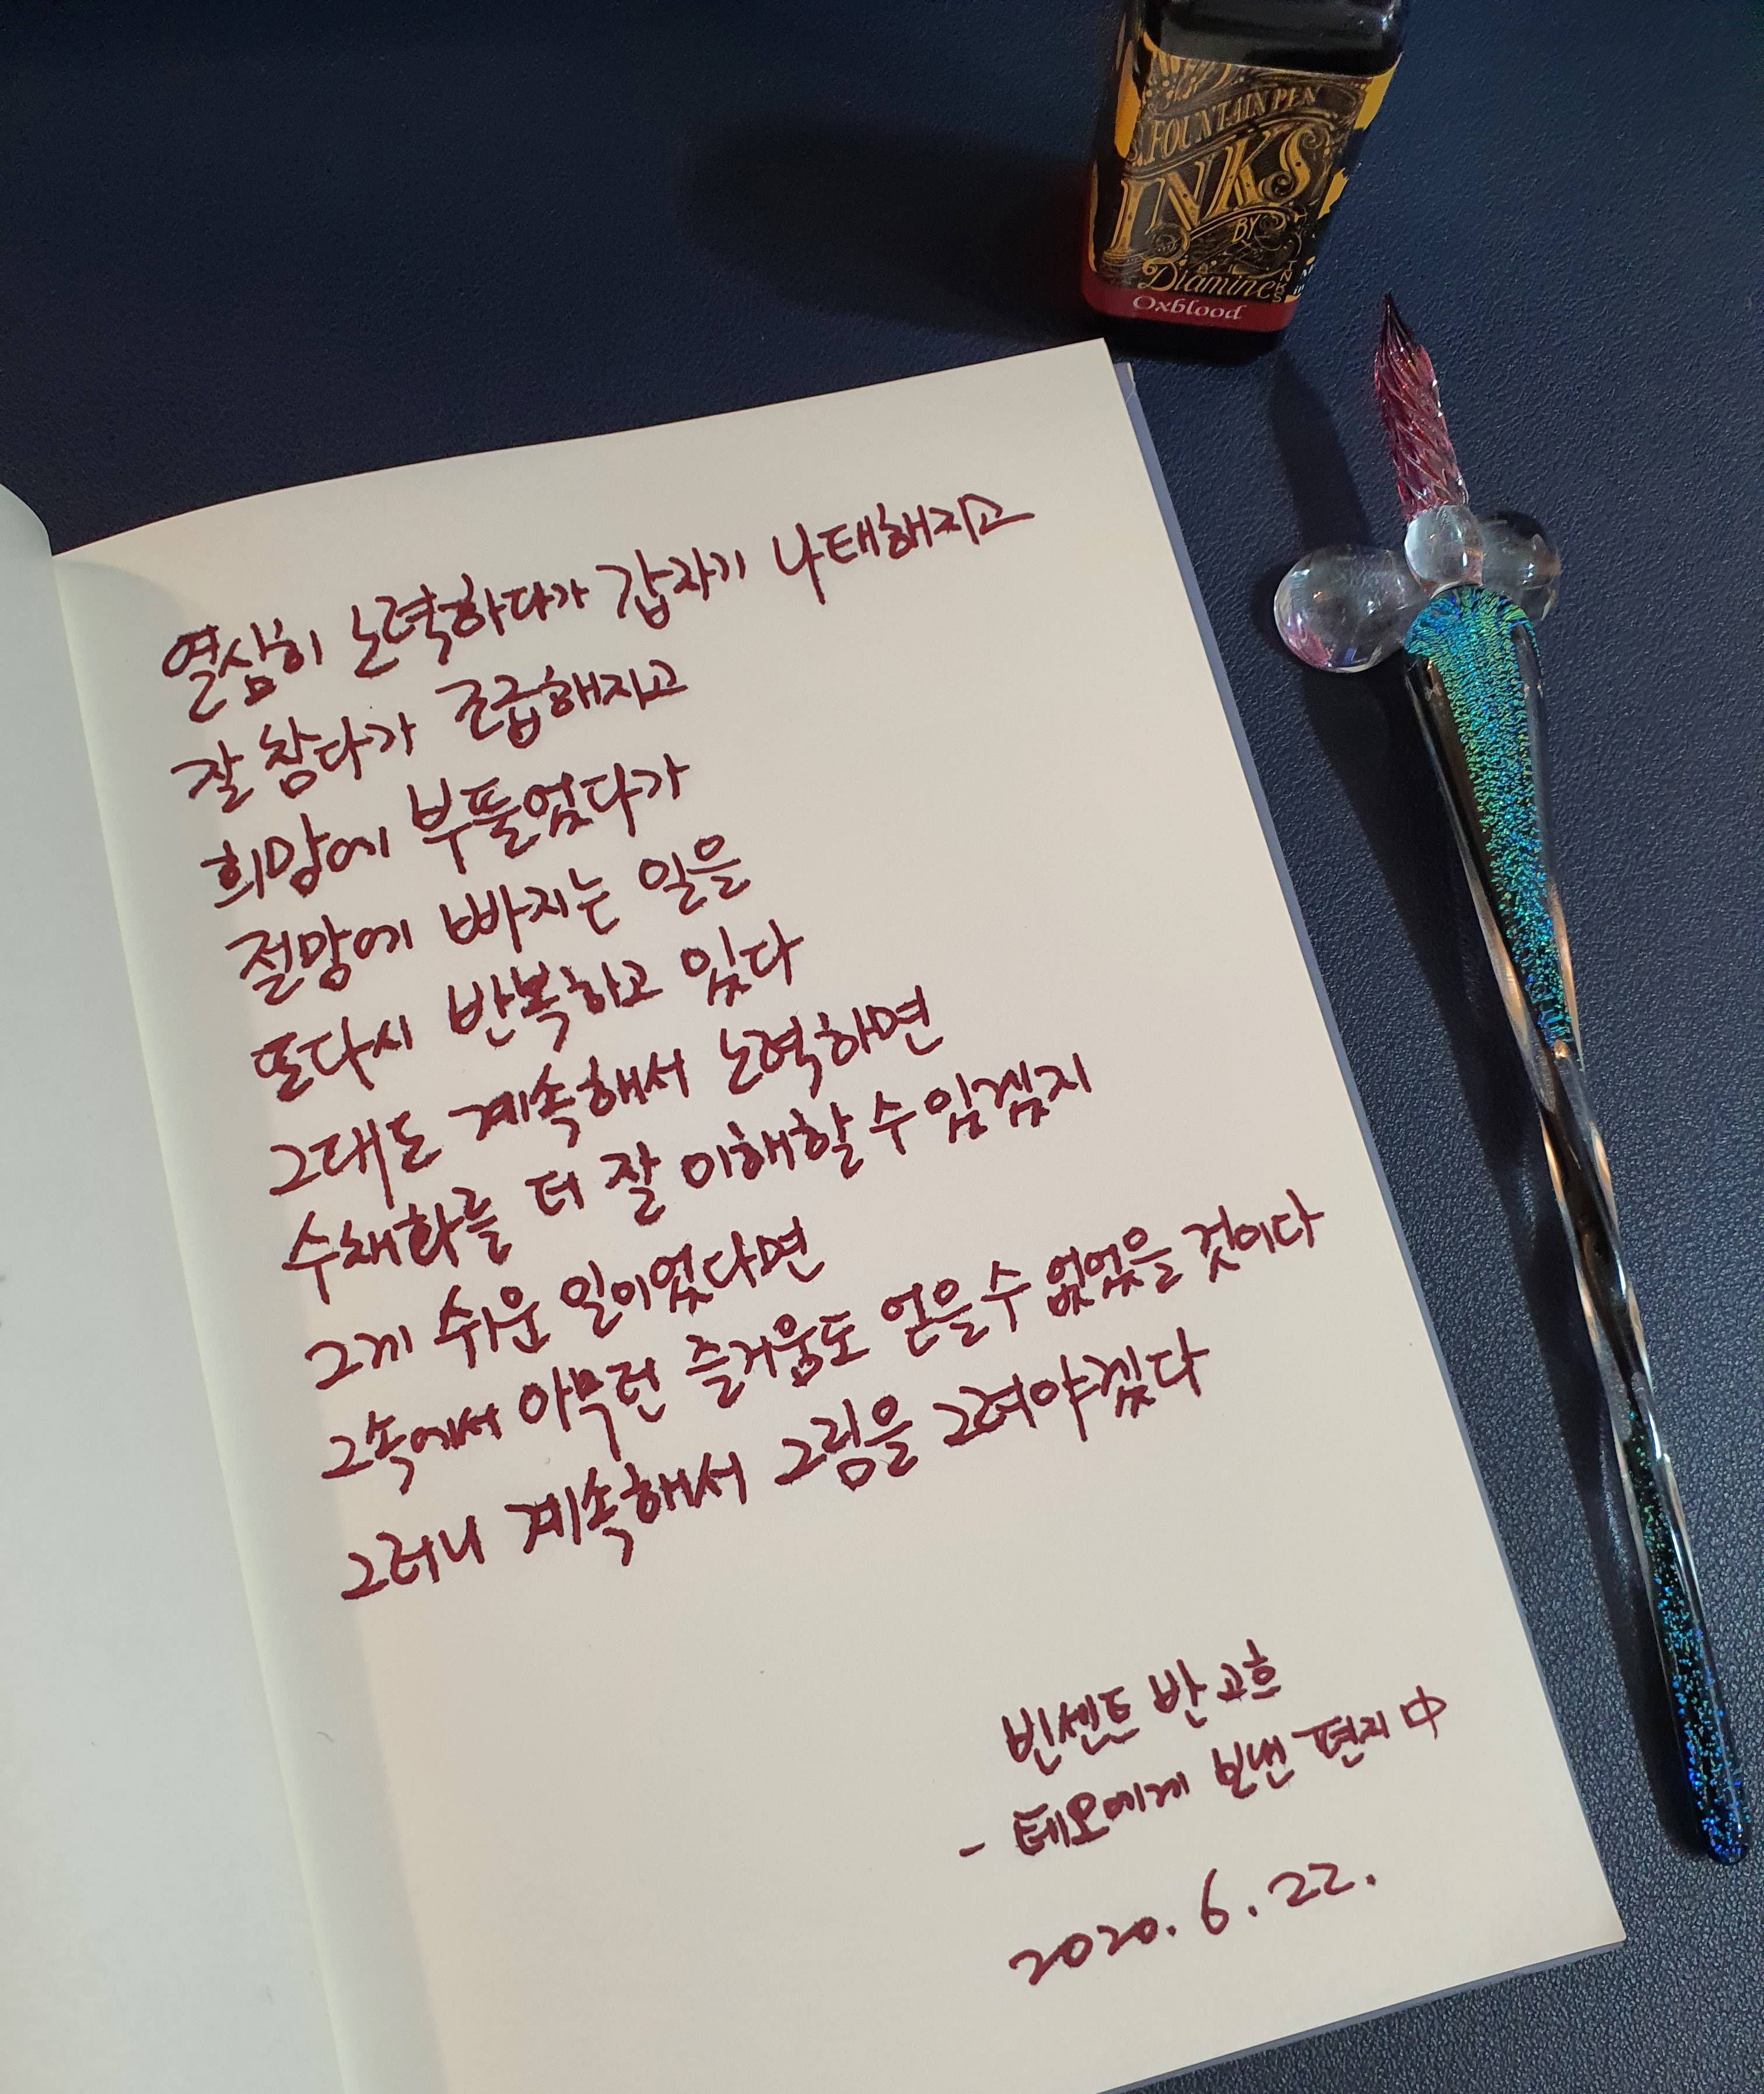 FOUNTAIN PEN
INKS
BY
Diamine
INKS
Oxblood
열심히 노력하다가 갑자기 나태해지고
잘 참다가 조급해지고
희망에 부풀었다가
절망에 빠지는 일을
또다시 반복하고 있다
그대도 계속해서 노력하면
수채화를 더 잘 이해할 수 있겠지
그게 쉬운 일이었다면
그 속에서 아무런 즐거움도 얻을 수 없었을 것이다
그러니 계속해서 그림을 그려야겠다
빈센트 반 고흐
- 테오에게 보낸 편지 中
2020. 6. 22.